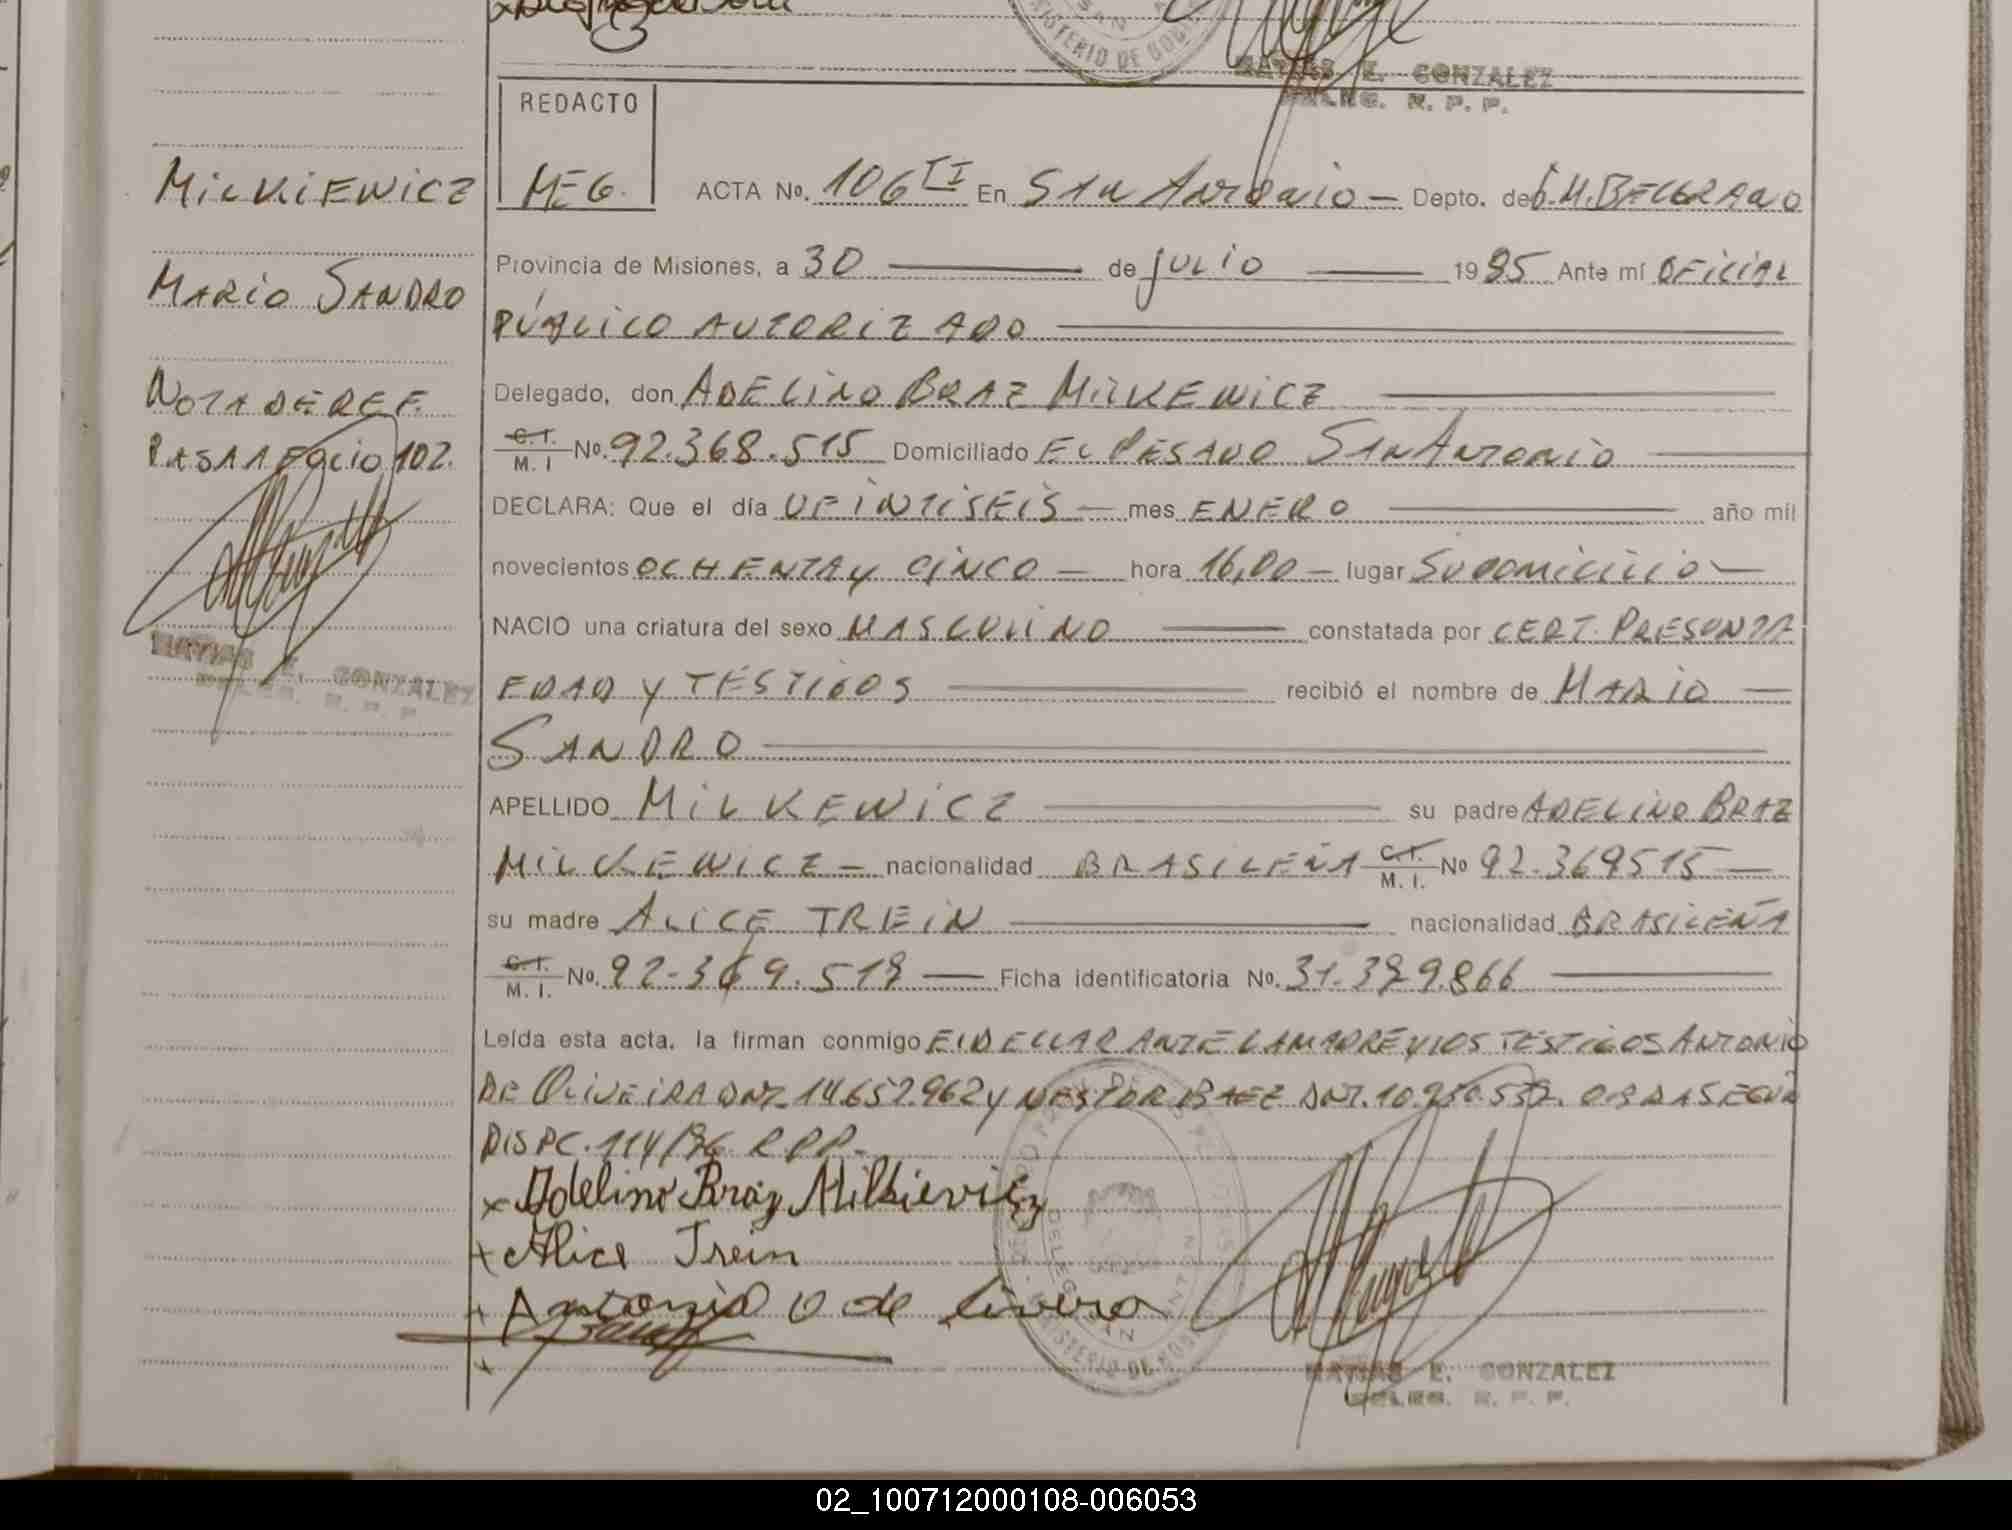 MATIAS E. GONZALEZ
DELEG. R. P. P.
REDACTO
MEG.
ACTA No. 106 TI En SAN ANTONIO — Depto. de G.M.BELGRANO
MILKIEWICZ
Provincia de Misiones, a 30 de JULIO 1985 Ante mí OFICIAL
MARIO SANDRO
PÚBLICO AUTORIZADO
NOTA DE REF.
Delegado, don ADELINO BRAZ MILKEWICZ
PASA A FOLIO 102.
C.I. M. I No. 92.368.515 Domiciliado EL PESADO SAN ANTONIO
DECLARA: Que el día VEINTISEIS — mes ENERO año mil
novecientos OCHENTA Y CINCO — hora 16,00 — lugar SU DOMICILIO —
NACIO una criatura del sexo MASCULINO constatada por CERT. PRESUNTA
EDAD Y TESTIGOS recibió el nombre de MARIO —
MATIAS E. GONZALEZ
DELEG. R. P. P.
SANDRO
APELLIDO MILKEWICZ su padre ADELINO BRAZ
MILKEWICZ — nacionalidad BRASILEÑA C.I. M. I. No 92.369515 —
su madre ALICE TREIN nacionalidad BRASILEÑA
C.I. M. I. No. 92.369.519 — Ficha identificatoria No. 31.399.866
Leída esta acta, la firman conmigo EL DECLAR ANTE LA MADRE Y LOS TESTIGOS ANTONIO
DE OLIVEIRA DNI. 14.652.962 Y NESTOR BAEZ DNI. 10.950.552. OBRA SEGÚN
DISPC. 114/96 R.P.P.
x Adelino Braz Milkievicz
x Alice Trein
x Antonio O de liveira
x
MATIAS E. GONZALEZ
DELEG. R. P. P.
02_100712000108-006053